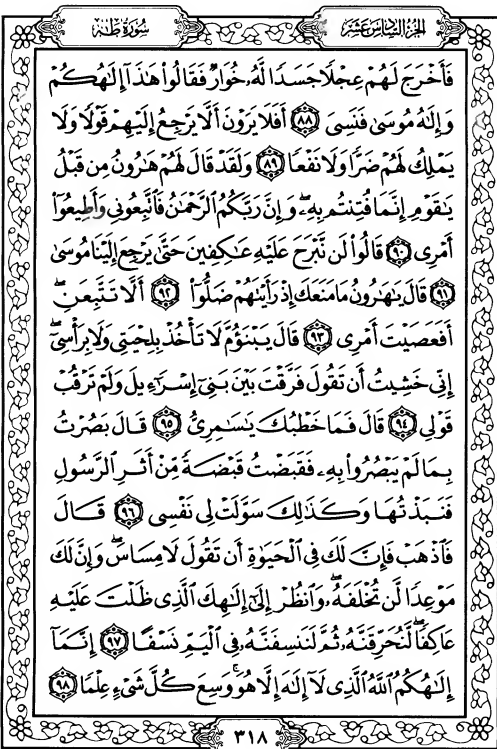 الجزء السادس عشر
سورة طه
فَأَخْرَجَ لَهُمْ عِجْلًا جَسَدًا لَّهُۥ خُوَارٌ فَقَالُوا۟ هَٰذَآ إِلَٰهُكُمْ
وَإِلَٰهُ مُوسَىٰ فَنَسِىَ ٨٨ أَفَلَا يَرَوْنَ أَلَّا يَرْجِعُ إِلَيْهِمْ قَوْلًا وَلَا
يَمْلِكُ لَهُمْ ضَرًّا وَلَا نَفْعًا ٨٩ وَلَقَدْ قَالَ لَهُمْ هَٰرُونُ مِن قَبْلُ
يَٰقَوْمِ إِنَّمَا فُتِنتُم بِهِۦ وَإِنَّ رَبَّكُمُ ٱلرَّحْمَٰنُ فَٱتَّبِعُونِى وَأَطِيعُوٓا۟
أَمْرِى ٩٠ قَالُوا۟ لَن نَّبْرَحَ عَلَيْهِ عَٰكِفِينَ حَتَّىٰ يَرْجِعَ إِلَيْنَا مُوسَىٰ
٩١ قَالَ يَٰهَٰرُونُ مَا مَنَعَكَ إِذْ رَأَيْتَهُمْ ضَلُّوٓا۟ ٩٢ أَلَّا تَتَّبِعَنِ ۖ
أَفَعَصَيْتَ أَمْرِى ٩٣ قَالَ يَبْنَؤُمَّ لَا تَأْخُذْ بِلِحْيَتِى وَلَا بِرَأْسِىٓ ۖ
إِنِّى خَشِيتُ أَن تَقُولَ فَرَّقْتَ بَيْنَ بَنِىٓ إِسْرَٰٓءِيلَ وَلَمْ تَرْقُبْ
قَوْلِى ٩٤ قَالَ فَمَا خَطْبُكَ يَٰسَٰمِرِىُّ ٩٥ قَالَ بَصُرْتُ
بِمَا لَمْ يَبْصُرُوا۟ بِهِۦ فَقَبَضْتُ قَبْضَةً مِّنْ أَثَرِ ٱلرَّسُولِ
فَنَبَذْتُهَا وَكَذَٰلِكَ سَوَّلَتْ لِى نَفْسِى ٩٦ قَالَ
فَٱذْهَبْ فَإِنَّ لَكَ فِى ٱلْحَيَوٰةِ أَن تَقُولَ لَا مِسَاسَ ۖ وَإِنَّ لَكَ
مَوْعِدًا لَّن تُخْلَفَهُۥ ۖ وَٱنظُرْ إِلَىٰٓ إِلَٰهِكَ ٱلَّذِى ظَلْتَ عَلَيْهِ
عَاكِفًا ۖ لَّنُحَرِّقَنَّهُۥ ثُمَّ لَنَنسِفَنَّهُۥ فِى ٱلْيَمِّ نَسْفًا ٩٧ إِنَّمَآ
إِلَٰهُكُمُ ٱللَّهُ ٱلَّذِى لَآ إِلَٰهَ إِلَّا هُوَ ۚ وَسِعَ كُلَّ شَىْءٍ عِلْمًا ٩٨
٣١٨